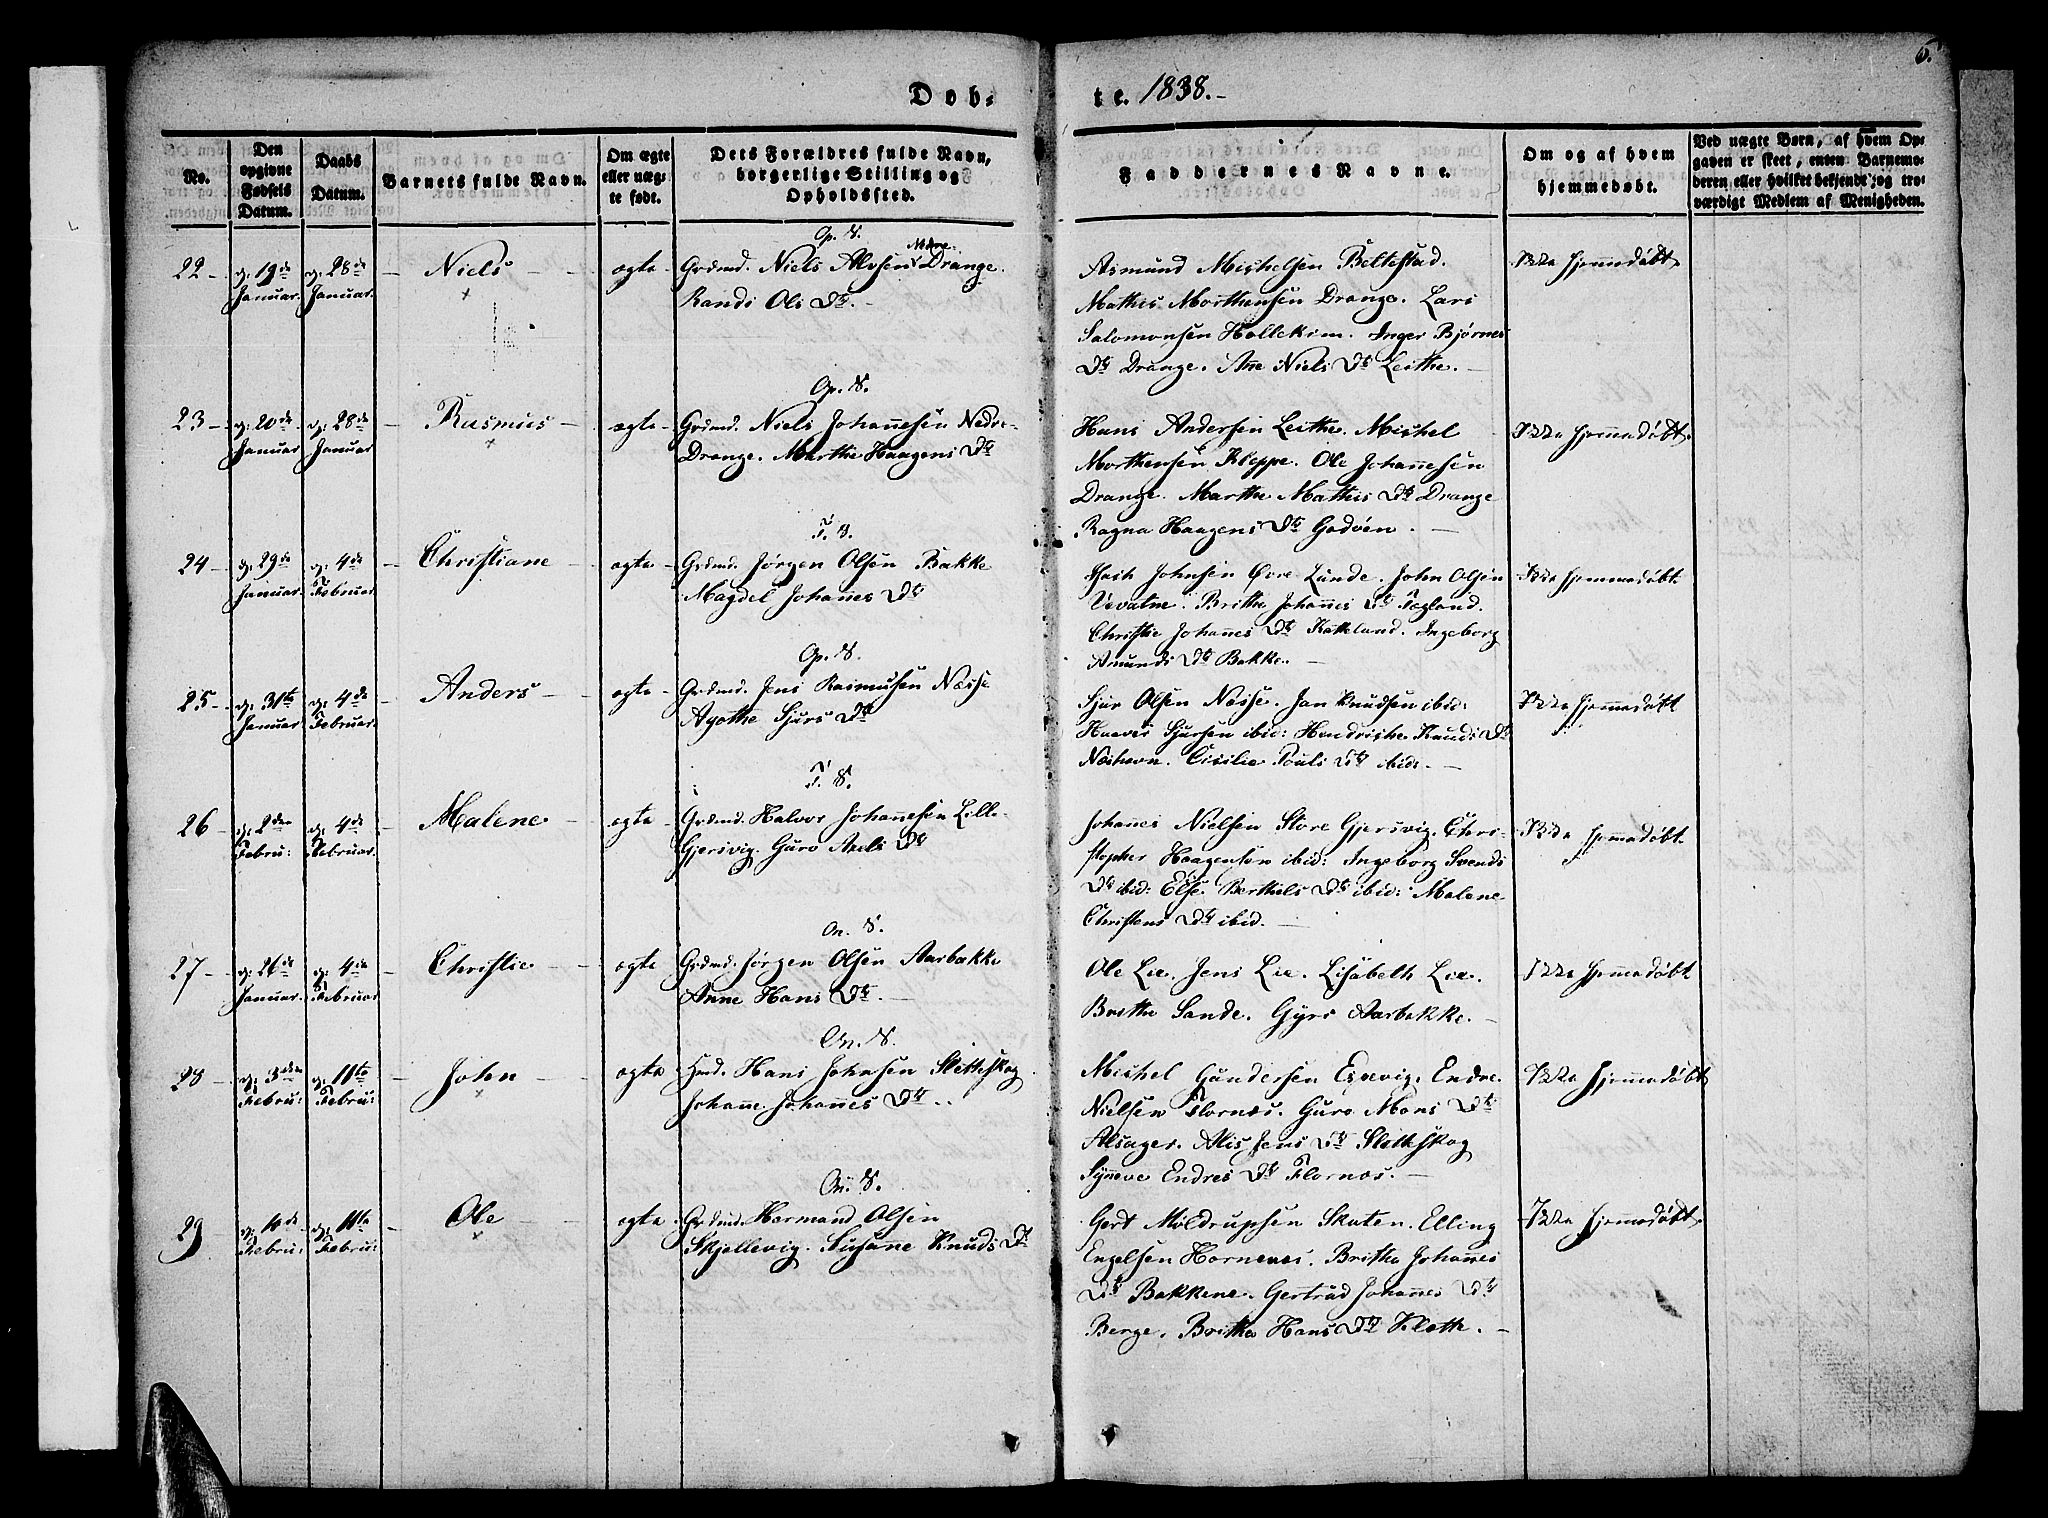 5.
Døb-
te. 1838.-
No.
Den opgivne Fødsels Datum.
Daabs Datum.
Barnets fulde Navn.
Om ægte eller uægte født.
Dets Forældres fulde Navn, borgerlige Stilling og Opholdssted.
Faddernes Navne.
Om og af hvem hjemmedøbt.
Ved uægte Børn, af hvem Opgaven er skeet, enten Barnemoderen eller hvilket bekjendt, og troværdigt Medlem af Menigheden.
Op. S.
22 - d: 19de Januar. d: 28de Januar. - Niels - - ægte Grdmd. Niels Alvsen Drange.
Randi Ols Dtr. -
Asmund Michelsen Beltestad.
Mathis Morthensen Drange. Lars
Salomonsen Hollekim. Inger Bjørnes
Dtr Drange. Ane Niels Dtr Leithe. -
Ikke hjemmedøbt
Op. S.
23 - d: 20de Januar d: 28de Januar - Rasmus - ægte - Grdmd. Niels Johannesen Nedre-
Drange. Marthe Haagens Dtr
Hans Andersen Leithe. Michel
Morthensen Kleppe. Ole Johannesen
Drange. Marthe Mathis Dtr Drange
Ragna Haagens Dtr Godøen. -
Ikke hjemmedøbt.
F. S.
24 - d: 29de Januar. d: 4de Februar. - Christiane - ægte - Grdmd. Jørgen Olsen Bakke
Magdel Johannes Dtr
Isach Johnsen Øvre Lunde. John Olsen
Vevatne. Brithe Johannes Dtr Fagland.
Christie Johannes Dtr Katteland. Ingeborg
Amunds Dtr Bakke. -
Ikke hjemmedøbt
Op. S.
25 - d: 31te Januar d: 4de Februar. - Anders - ægte - Grdmd. Jens Rasmusen Næsse
Agothe Sjurs Dtr
Sjur Olsen Næsse. Jan Knudsen ibid:
Haaver Sjursen ibid: Hendriche Knuds Dtr
Næshavn. Cicilie Pouls Dtr ibid. -
Ikke hjemmedøbt
F. S.
26 - d: 2den Febru: d: 4de Februar. - Malene - ægte - Grdmd. Halvor Johannesen Lille-
Gjersvig. Guro Axels Dtr
Johannes Nielsen Store Gjersvig. Chri-
stopher Haagensen ibid: Ingeborg Svends
Dtr ibid: Else Berthels Dtr ibid: Malene
Christens Dtr ibid. -
Ikke hjemmedøbt
On. S.
27 - d: 26de Januar. d: 4de Februar - Christie - - ægte Grdmd. Jørgen Olsen Aarbakke
Anne Hans Dtr. -
Ole Lie. Jens Lie. Lisabeth Lie.
Brithe Sande. Gyri Aarbakke. -
Ikke hjemmedøbt
On. S.
28 - d: 3die Febru: d: 11te Febru: - John - ægte Hmd. Hans Johnsen Sletteskog
Johanne Johannes Dtr. -
Michel Gundersen Espevig. Endre
Nielsen Flornæs. Guro Mons Dtr
Alsager. Alis Jens Dtr Sletteskog
Synneve Endres Dtr Flornæs. -
Ikke hjemmedøbt
On. S.
29 d: 10de Febru: d: 11te Febru: - Ole - - ægte - Grdmd. Hermand Olsen
Skjellevig. Susanne Knuds Dtr
Gert Møldrupsen Skaten. Elling
Engelsen Hornenes. Brithe Johannes
Dtr Bakkene. Gertrud Johannes Dtr
Berge. Brithe Hans Dtr Kleth. -
Ikke hjemmedøbt.